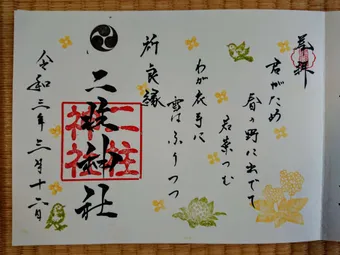 奉拝
君がため
春の野に出でて
若菜つむ
わが衣手に
雪はふりつつ
祈良縁
二柱神社
二柱神社
令和三年三月十二日